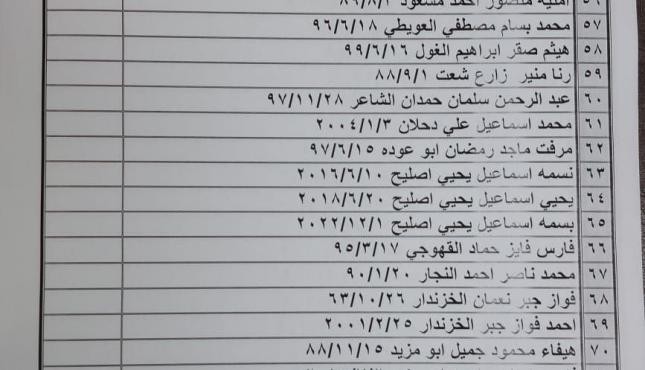 ٥٦ امنية منصور احمد مسعود ٨٩/٨/٢
٥٧ محمد بسام مصطفي العويطي ٩٦/٦/١٨
٥٨ هيثم صقر ابراهيم الغول ٩٩/٦/١٦
٥٩ رنا منير زارع شعت ٨٨/٩/١
٦٠ عبد الرحمن سلمان حمدان الشاعر ٩٧/١١/٢٨
٦١ محمد اسماعيل علي دحلان ٢٠٠٤/١/٣
٦٢ مرفت ماجد رمضان ابو عوده ٩٧/٦/١٥
٦٣ نسمه اسماعيل يحيي اصليح ٢٠١٦/٦/١٠
٦٤ يحيي اسماعيل يحيي اصليح ٢٠١٨/٦/٢٠
٦٥ بسمه اسماعيل يحيي اصليح ٢٠٢٢/١٢/١
٦٦ فارس فايز حماد القهوجي ٩٥/٣/١٧
٦٧ محمد ناصر احمد النجار ٩٠/١/٢٠
٦٨ فواز جبر نعمان الخزندار ٦٣/١٠/٢٦
٦٩ احمد فواز جبر الخزندار ٢٠٠١/٢/٢٥
٧٠ هيفاء محمود جميل ابو مزيد ٨٨/١١/١٥